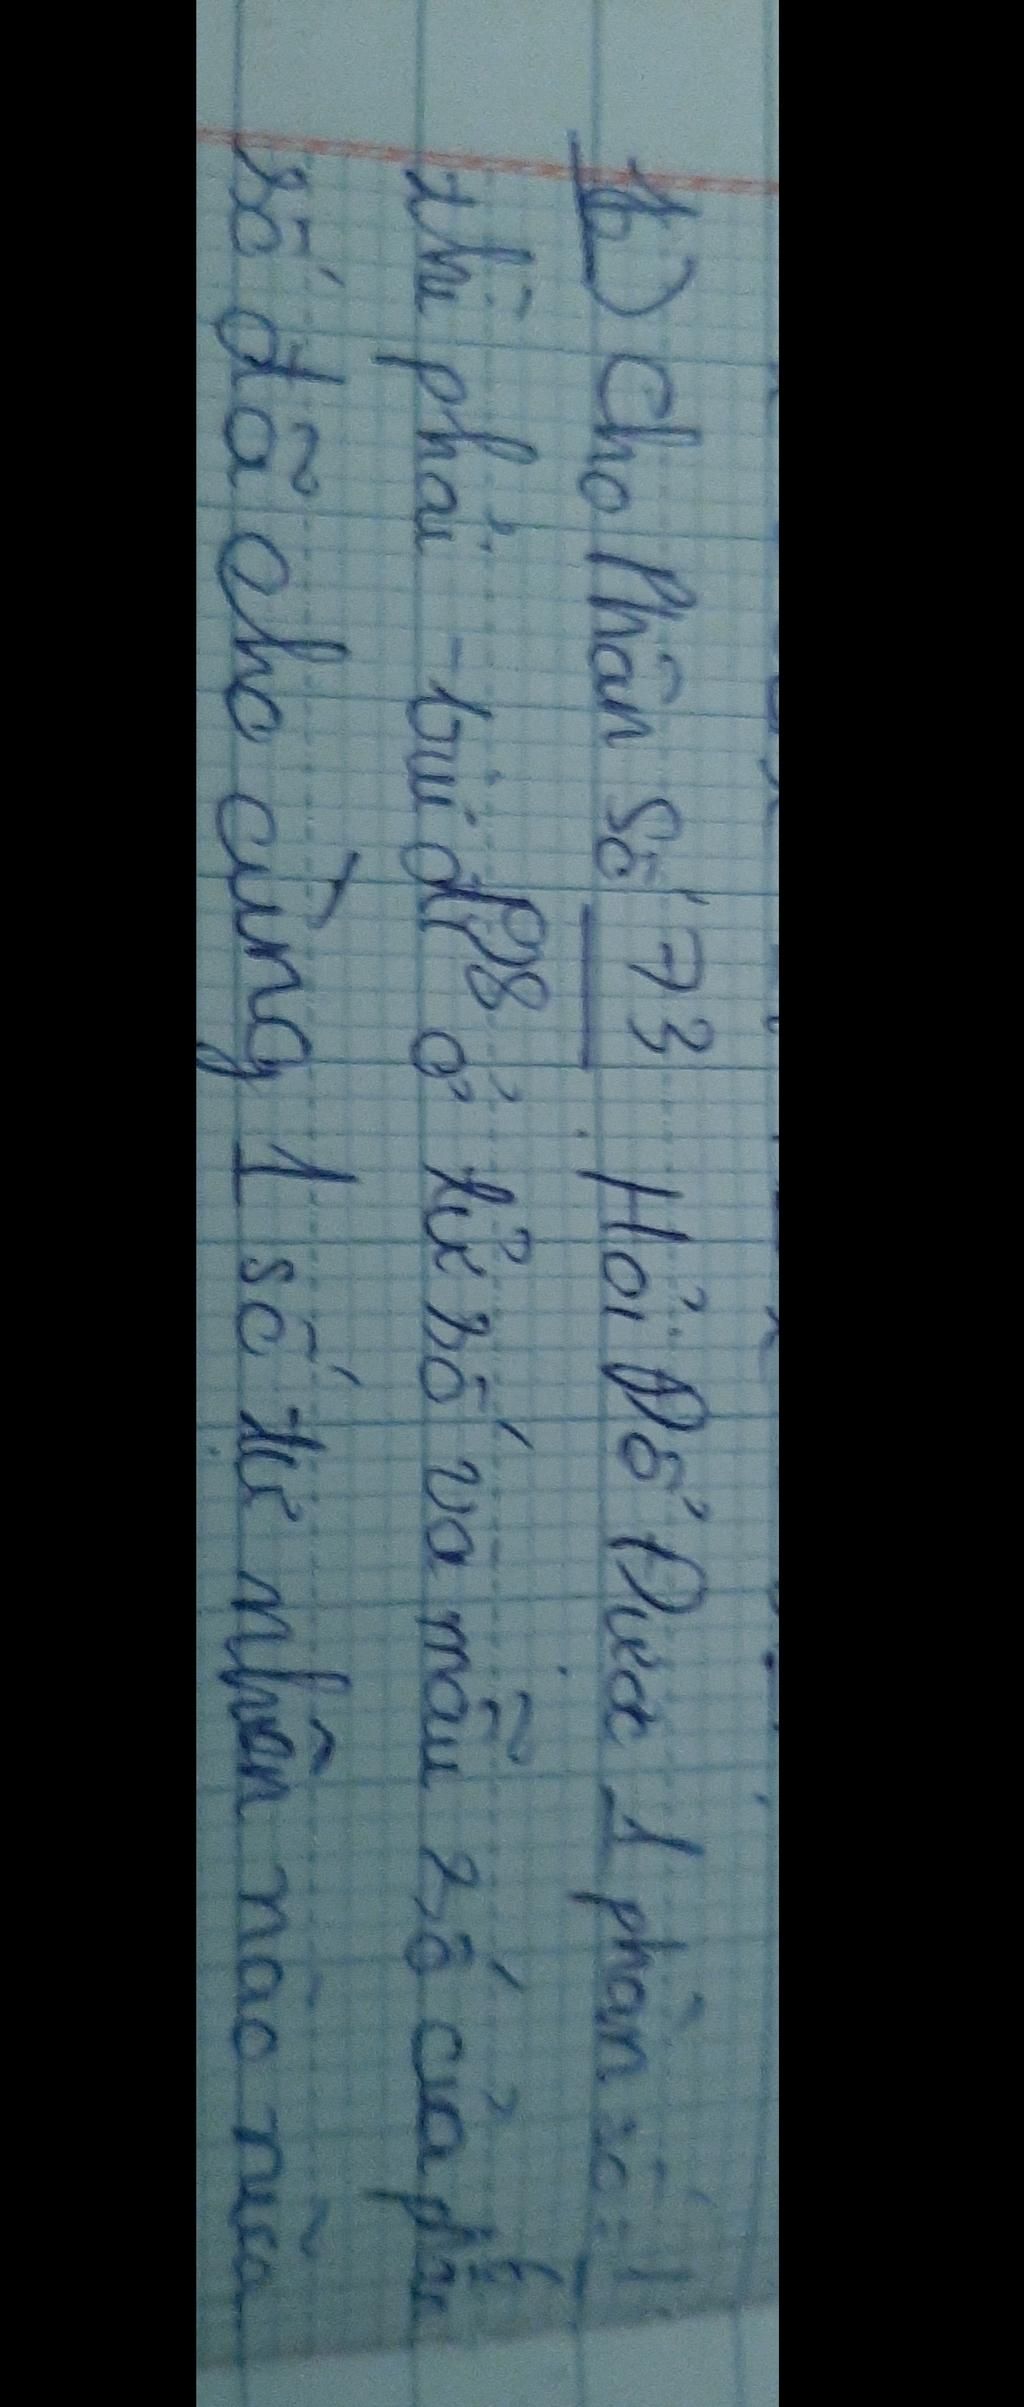 16) Cho Phân Số 73/98. Hỏi Để Được 1 phân số = 1/6
thì phải trừ đi ở tử số và mẫu số của phân
số đã cho cùng 1 số tự nhiên nào nữa